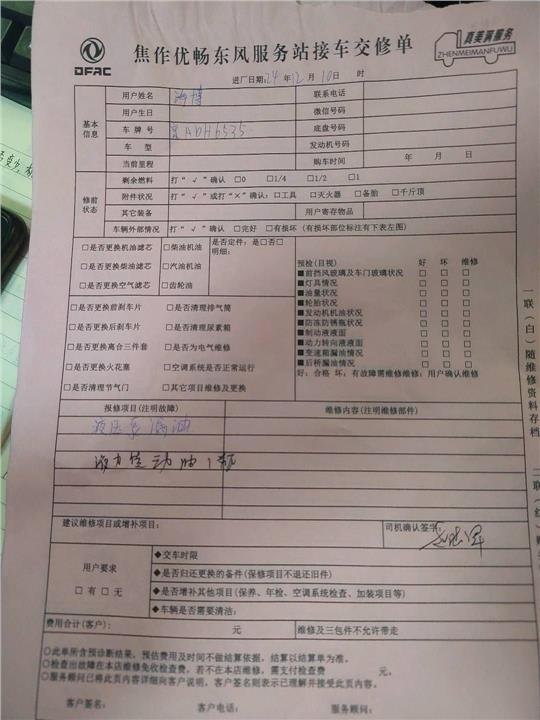 DFAC
焦作优畅东风服务站接车交修单
真美满服务
ZHENMEIMANFUWU
进厂日期:24年12月10日 时
基本信息
用户姓名 海博 联系电话
用户生日 微信号码
车牌号 ADH6535 底盘号码
车型 发动机号码
当前里程 购车时间 年 月 日
修前状态
剩余燃料 打“√”确认 □0 □1/4 □1/2 □1
附件状况 打“√”或打“×”确认:□工具 □灭火器 □备胎 □千斤顶
其它装备 用户寄存物品
车辆外部情况 打“√”确认 □完好 □有损坏(有损坏部位标注有下表左图)
□是否更换机油滤芯 □柴油机油 是否定件:是□否□
明细:
□是否更换柴油滤芯 □汽油机油
□是否更换空气滤芯 □齿轮油
预检(目视) 好 坏 维修
■前挡风玻璃及车门玻璃状况 □ □ □
■灯具情况 □ □ □
■油量状况 □ □ □
■轮胎状况 □ □ □
■发动机机油状况 □ □ □
■防冻防锈瓶状况 □ □ □
■制动液液面 □ □ □
■动力转向液液面 □ □ □
■变速箱漏油情况 □ □ □
■后桥漏油情况 □ □ □
好:合格 坏:有故障需维修维修:用户确认维修
□是否更换前刹车片 □是否清理排气筒
□是否更换后刹车片 □是否清理尿素箱
□是否更换离合三件套 □是否为电气维修
□是否更换火花塞 □空调系统是否正常运行
□是否清理节气门 □其它项目维修及更换
报修项目(注明故障) 维修内容(注明维修部件)
液压泵漏油
液力传动油1瓶
建议维修项目或增补项目: 司机确认签字:
用户要求
□有 □无
◆交车时限
◆是否归还更换的备件(保修项目不退还旧件)
◆是否增补其他项目(保养、年检、空调系统检查、加装项目等)
◆车辆是否需要清洁:
费用合计(客户): 元 维修及三包件不允许带走
○此单所含预诊断结果,预估费用及时间不做结算依据,结算以结算单为准。
○检查出故障在本店维修免收检查费,若不在本店维修,需支付检查费 元。
○服务顾问已将此页内容详细向客户说明,客户签名则表示已理解并接受此页内容。
客户签名: 客户电话: 服务顾问:
一联(白)随维修资料存档
二联(红)